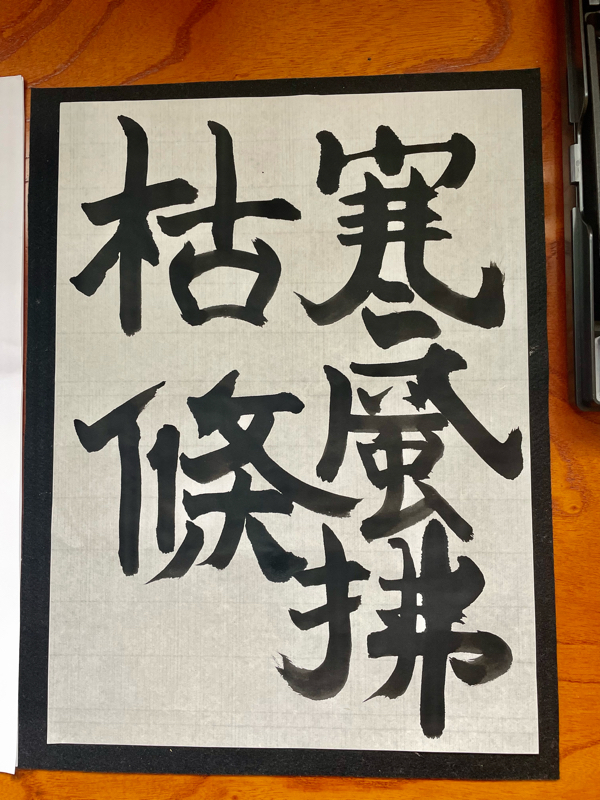 寒風拂
枯條